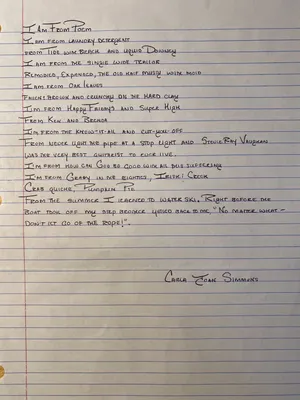 I Am From Poem
I am from laundry detergent
From Tide with Bleach and liquid Downey
I am from the single wide trailor
Remodled, Expanded, the old half musty with mold
I am from Oak leaves
Fallen brown and crunchy on the hard clay
I'm from Happy Fridays and Super High
From Ken and Brenda
I'm from the know-it-all and cut-you off
From never light the pipe at a stop light and Stevie Ray Vaughan
was the very best guitarist to ever live.
I'm from how can God be good with all this suffering
I'm from Grady in the eighties, Irish Creek
Crab quiche, Pumpkin Pie
From the summer I learned to water ski. Right before the
boat took off my step brother yelled back to me, "No matter what -
Don't let go of the rope!".
Carla Simmons